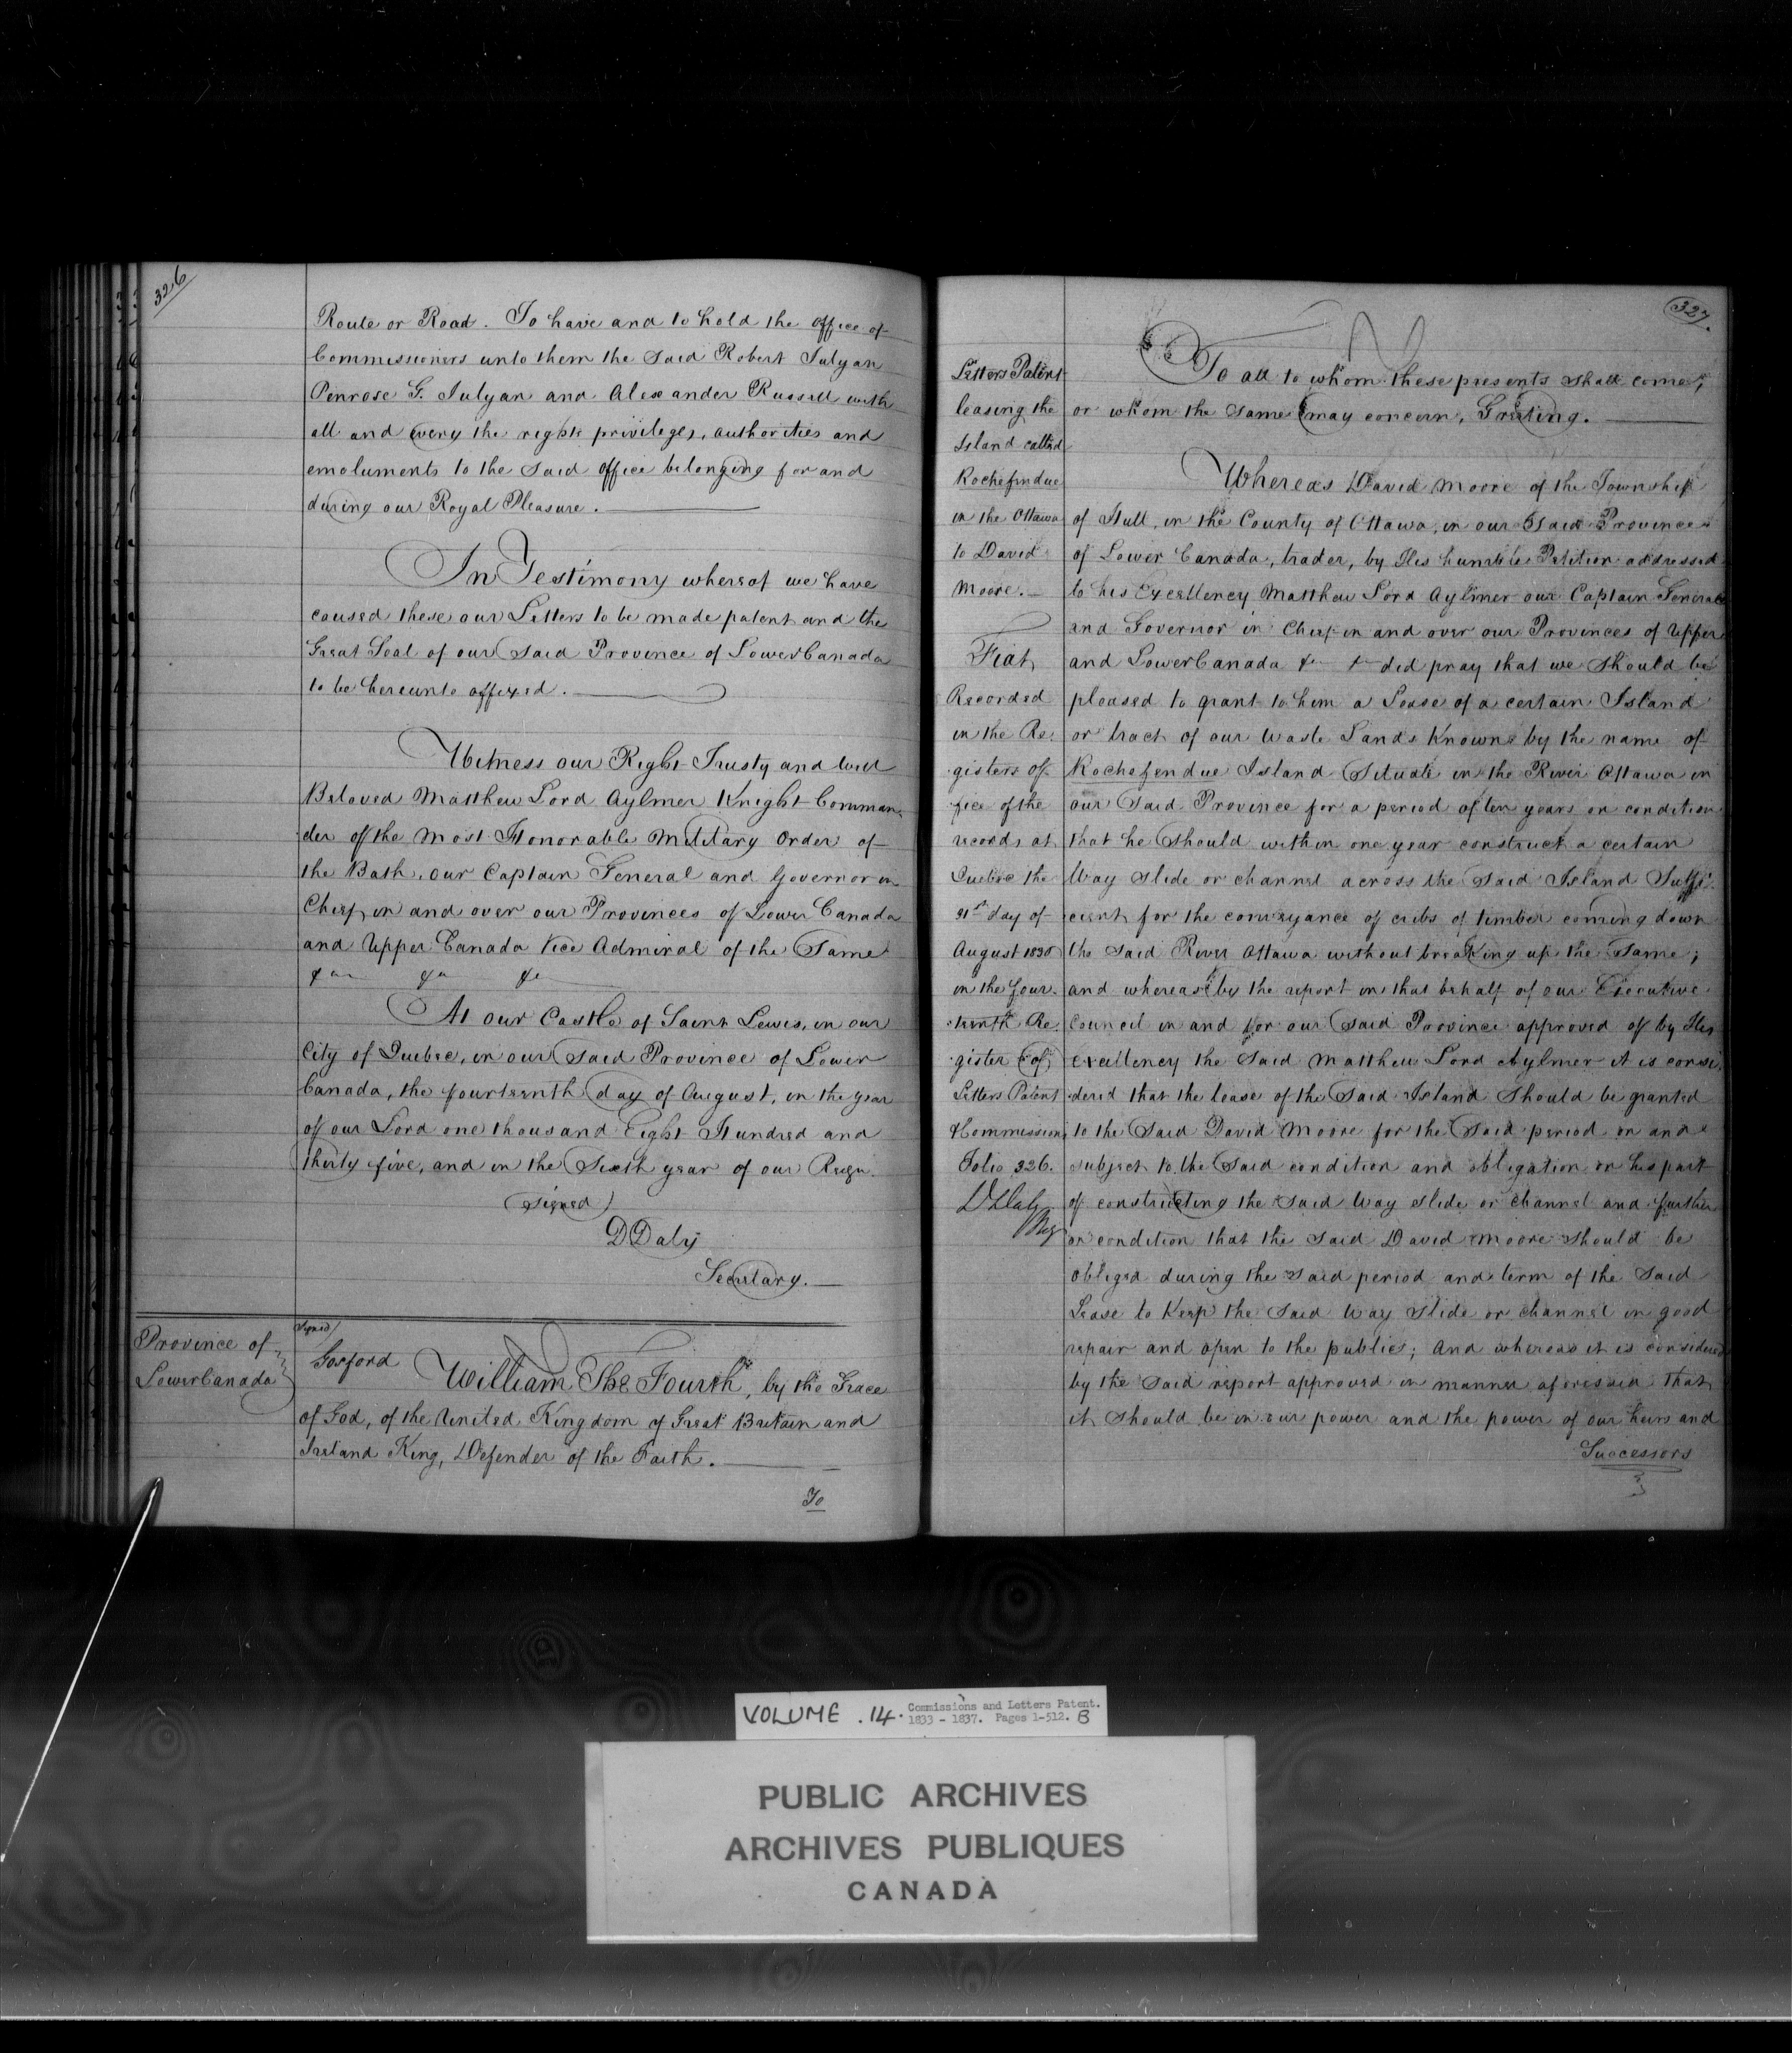 326
Route or Road. To have and to hold the office of
Commissioners unto them the Said Robert Julyan
Penrose G. Julyan and Alexander Russell with
all and every the rights privileges, authorities and
emoluments to the Said office belonging for and
during our Royal Pleasure.
In Testimony whereof we have
caused these our Letters to be made patent and the
Great Seal of our Said Province of Lower Canada
to be hereunto affixed.
Witness our Right Trusty and Well
Beloved Matthew Lord Aylmer Knight Comman-
der of the Most Honorable Military Order of
the Bath, our Captain General and Governor in
Chief in and over our Provinces of Lower Canada
and Upper Canada Vice Admiral of the Same
&a &a &a
At our Castle of Saint Lewis, in our
City of Quebec, in our Said Province of Lower
Canada, the fourteenth day of August, in the year
of our Lord one thousand Eight Hundred and
thirty five, and in the Sixth year of our Reign.
(signed)
D Daly
Secretary.
Province of
Lower Canada
signed
Gosford
William The Fourth, by the Grace
of God, of the United Kingdom of Great Britain and
Ireland King, Defender of the Faith.
To
327.
Letters Patent
leasing the
Island called
Rochefendue
in the Ottawa
to David
Moore.
Fiat
Recorded
in the Re-
gisters of-
fice of the
records at
Quebec the
31st day of
August 1835
in the four-
teenth Re-
gister of
Letters Patent
& Commissions
Folio 326.
D Daly
Reg
To all to whom these presents shall come,
or whom the same may concern, Greeting.
Whereas David Moore of the Township
of Hull, in the County of Ottawa, in our Said Province
of Lower Canada, trader, by His humble Petition addressed
to his Excellency Matthew Lord Aylmer our Captain General
and Governor in Chief in and over our Provinces of Upper
and Lower Canada &a &a did pray that we Should be
pleased to grant to him a Lease of a certain Island
or tract of our Waste Lands Known by the name of
Rochefendue Island Situate in the River Ottawa in
our Said Province for a period of ten years on condition
that he Should within one year construct a certain
Way slide or channel across the Said Island Suffi-
cient for the conveyance of cribs of timber coming down
the Said River Ottawa without breaking up the Same;
and whereas by the report in that behalf of our Executive
Council in and for our Said Province approved of by His
Excellency the Said Matthew Lord Aylmer it is consi-
dered that the lease of the Said Island Should be granted
to the Said David Moore for the Said period on and
subject to the Said condition and obligation on his part
of constructing the said Way slide or channel and further
on condition that the Said David Moore Should be
obliged during the Said period and term of the Said
Lease to Keep the Said Way slide or channel in good
repair and open to the public; And whereas it is considered
by the Said report approved in manner aforesaid that
it Should be in our power and the power of our heirs and
Successors
VOLUME .14. Commissions and Letters Patent.
1833 - 1837. Pages 1-512. B
PUBLIC ARCHIVES
ARCHIVES PUBLIQUES
CANADA